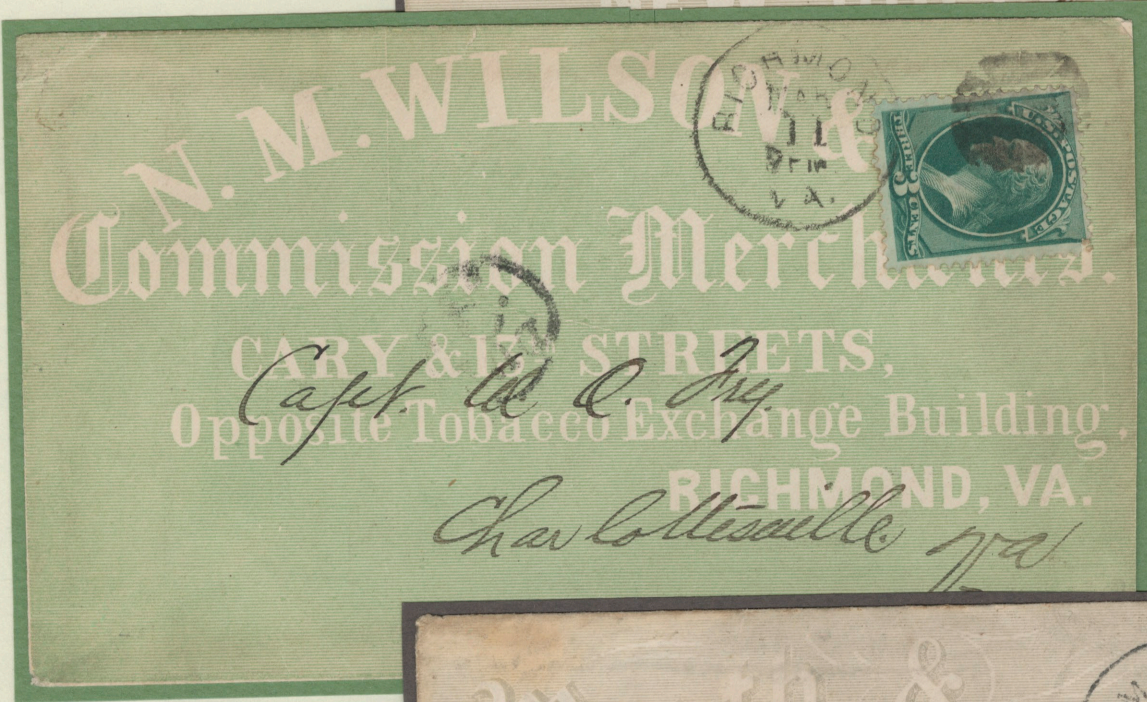 N. M. WILSON &
Commission Merchants.
CARY & 13th STREETS,
Opposite Tobacco Exchange Building,
RICHMOND, VA.
RICHMOND
MAR
11
VA.
U.S. POSTAGE
THREE 3 CENTS
Capt. Fry.
Charlottesville
Va
&